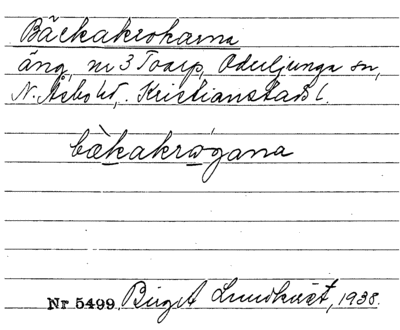 Bäckakrokarna
äng, nr 3 Toarp, Oderljunga sn,
N. Åsbo hd, Kristianstads l.
bækakrωgana
Nr 5499. Birgit Lundkvist, 1938.